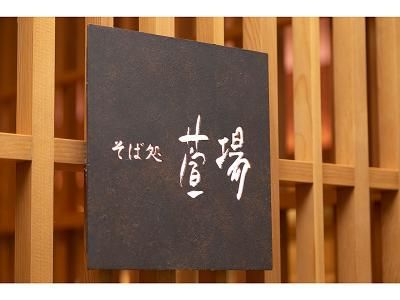 そば処 萱場